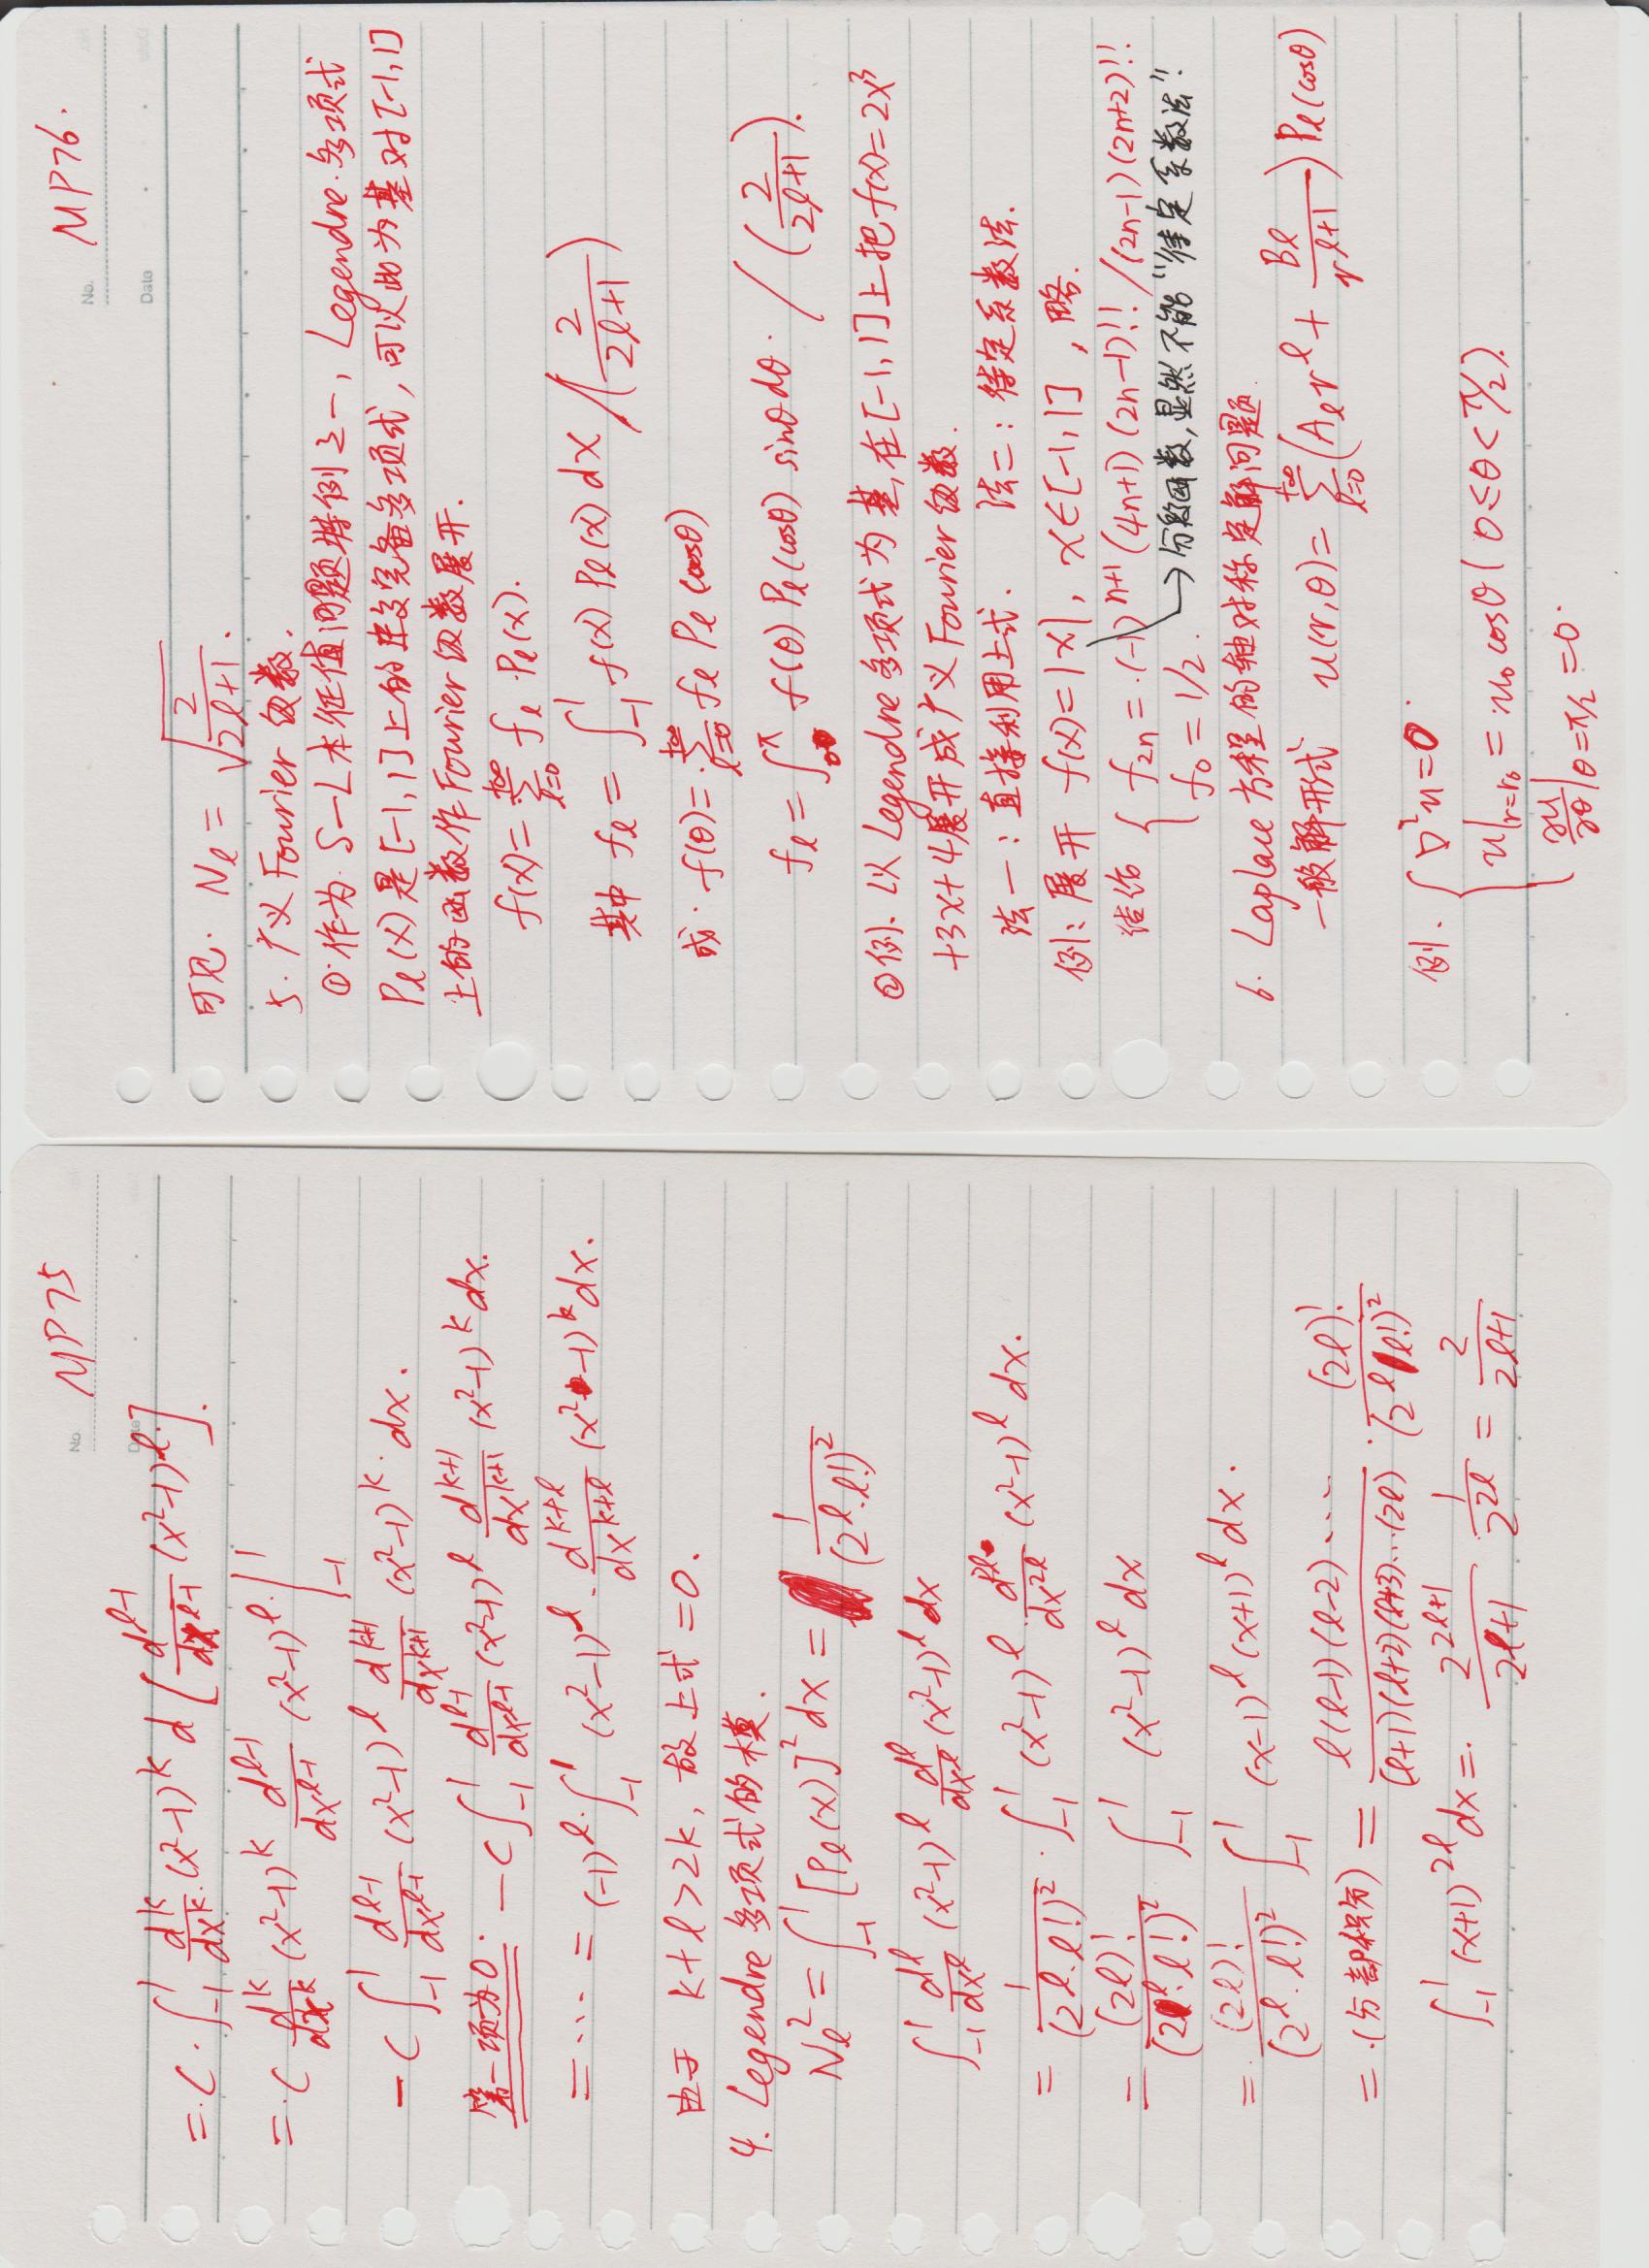 No. MP75
Date
= C · ∫_{-1}^{1} d^k/dx^k (x²-1)^k d [ d^{l-1}/dx^{l-1} (x²-1)^l ].
= C d^k/dx^k (x²-1)^k d^{l-1}/dx^{l-1} (x²-1)^l |_{-1}^{1}
- C ∫_{-1}^{1} d^{l-1}/dx^{l-1} (x²-1)^l d^{k+1}/dx^{k+1} (x²-1)^k · dx.
第一项为0. - C ∫_{-1}^{1} d^{l-1}/dx^{l-1} (x²-1)^l d^{k+1}/dx^{k+1} (x²-1)^k dx.
= ··· = (-1)^l · ∫_{-1}^{1} (x²-1)^l · d^{k+l}/dx^{k+l} (x²-1)^k dx.
由于 k+l>2k, 故上式=0.
4. Legendre 多项式的模.
N_l² = ∫_{-1}^{1} [P_l(x)]² dx = 1/(2^l·l!)²
∫_{-1}^{1} d^l/dx^l (x²-1)^l d^l/dx^l (x²-1)^l dx
= 1/(2^l·l!)² · ∫_{-1}^{1} (x²-1)^l · d^{2l}/dx^{2l} (x²-1)^l dx.
= (2l)!/(2^l·l!)² ∫_{-1}^{1} (x²-1)^l dx
= (2l)!/(2^l·l!)² ∫_{-1}^{1} (x-1)^l (x+1)^l dx.
= (分部积分) = l(l-1)(l-2)····/(l+1)(l+2)(l+3)···(2l) · (2l)!/(2^l l!)²
∫_{-1}^{1} (x+1)^{2l} dx = 2^{2l+1}/2l+1 · 1/2^{2l} = 2/2l+1
No. MP76.
Date
可见. N_l = √(2/2l+1).
5. 广义 Fourier 级数.
① 作为 S-L本征值问题特例之一, Legendre 多项式
P_l(x) 是 [-1,1] 上的正交完备多项式, 可以此为基对 [-1,1]
上的函数作 Fourier 级数展开.
f(x) = ∑_{l=0}^{+∞} f_l P_l(x).
其中 f_l = ∫_{-1}^{1} f(x) P_l(x) dx / (2/2l+1)
或. f(θ) = ∑_{l=0}^{+∞} f_l P_l (cosθ)
f_l = ∫_0^π f(θ) P_l(cosθ) sinθdθ. / (2/2l+1).
② 例. 以 Legendre 多项式为基, 在 [-1,1] 上把 f(x)=2x³
+3x+4展开成广义 Fourier 级数.
法一: 直接利用上式. 法二: 待定系数法.
例: 展开 f(x)=|x|, x∈[-1,1], 略.
结论 { f_{2n} = (-1)^{n+1} (4n+1) (2n-1)!! /(2n-1)(2n+2)!!
f_0 = 1/2. → 分段函数, 显然不能“待定系数法”!
6. Laplace 方程的轴对称定解问题
一般解形式 u(r,θ) = ∑_{l=0}^{+∞} (A_l r^l + B_l/r^{l+1}) P_l(cosθ)
例. { ∇²u=0
u|_{r=r_0} = u_0 cosθ (0≤θ<π/2).
∂u/∂θ|_{θ=π/2} = 0.